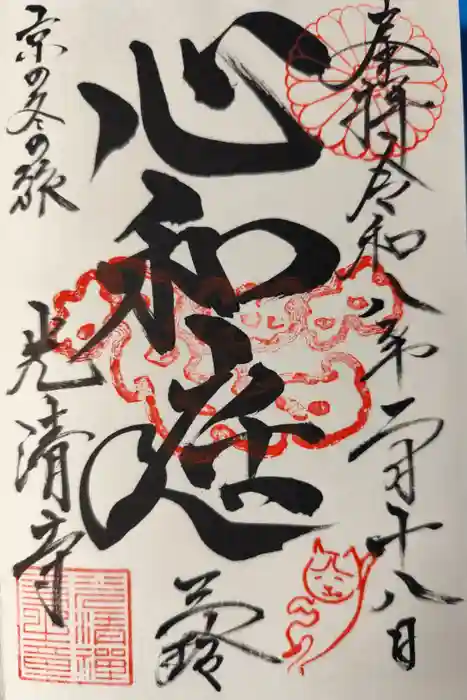 奉拝 令和八年二月十八日
心和庭
京の冬の旅
光清寺